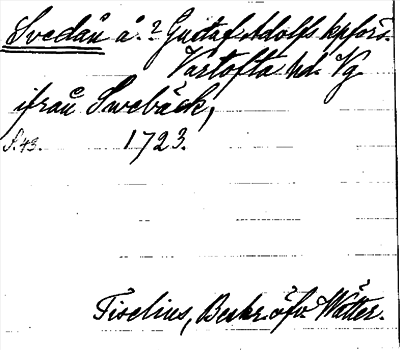 Svedån å.? Gustaf Adolfs kpförs.
Vartofta hd. Vg
ifrån Swebäck,
S. 43. 1723.
Tiselius, Beskr. öfv Wätter.